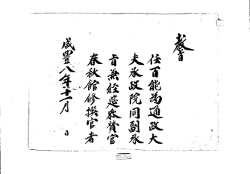 敎旨
任百能爲通政大
夫承政院同副承
旨兼經筵參贊官
春秋館修撰官者
咸豊八年十二月 日